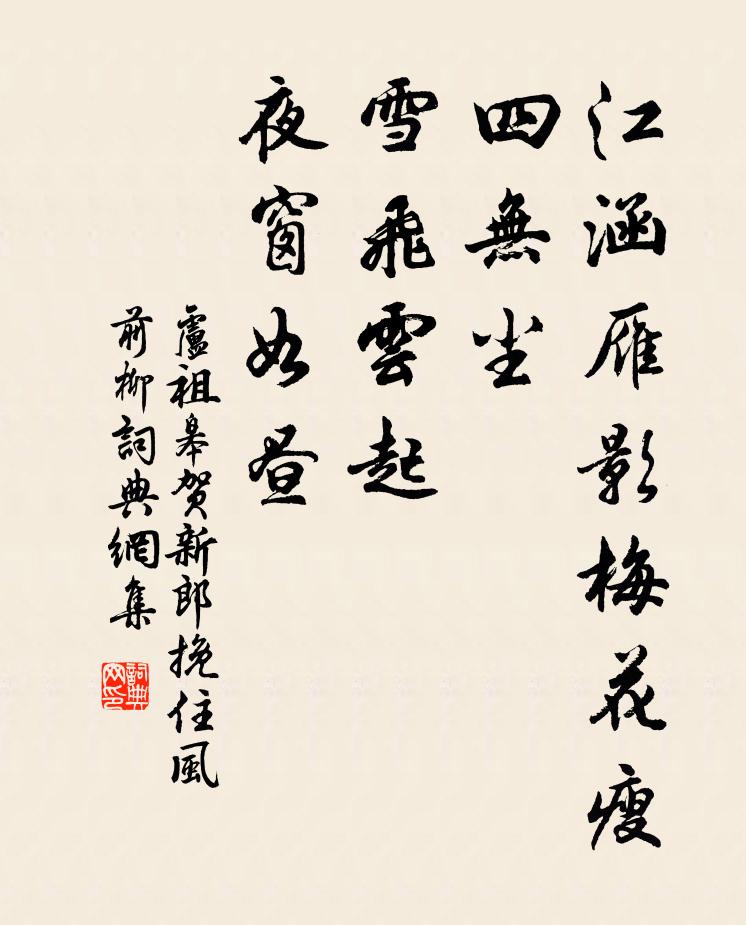 江涵雁影梅花瘦
四無塵
雪飛雲起
夜窗如晝
盧祖皋賀新郎挽住風
前柳詞典網集
詞典網印